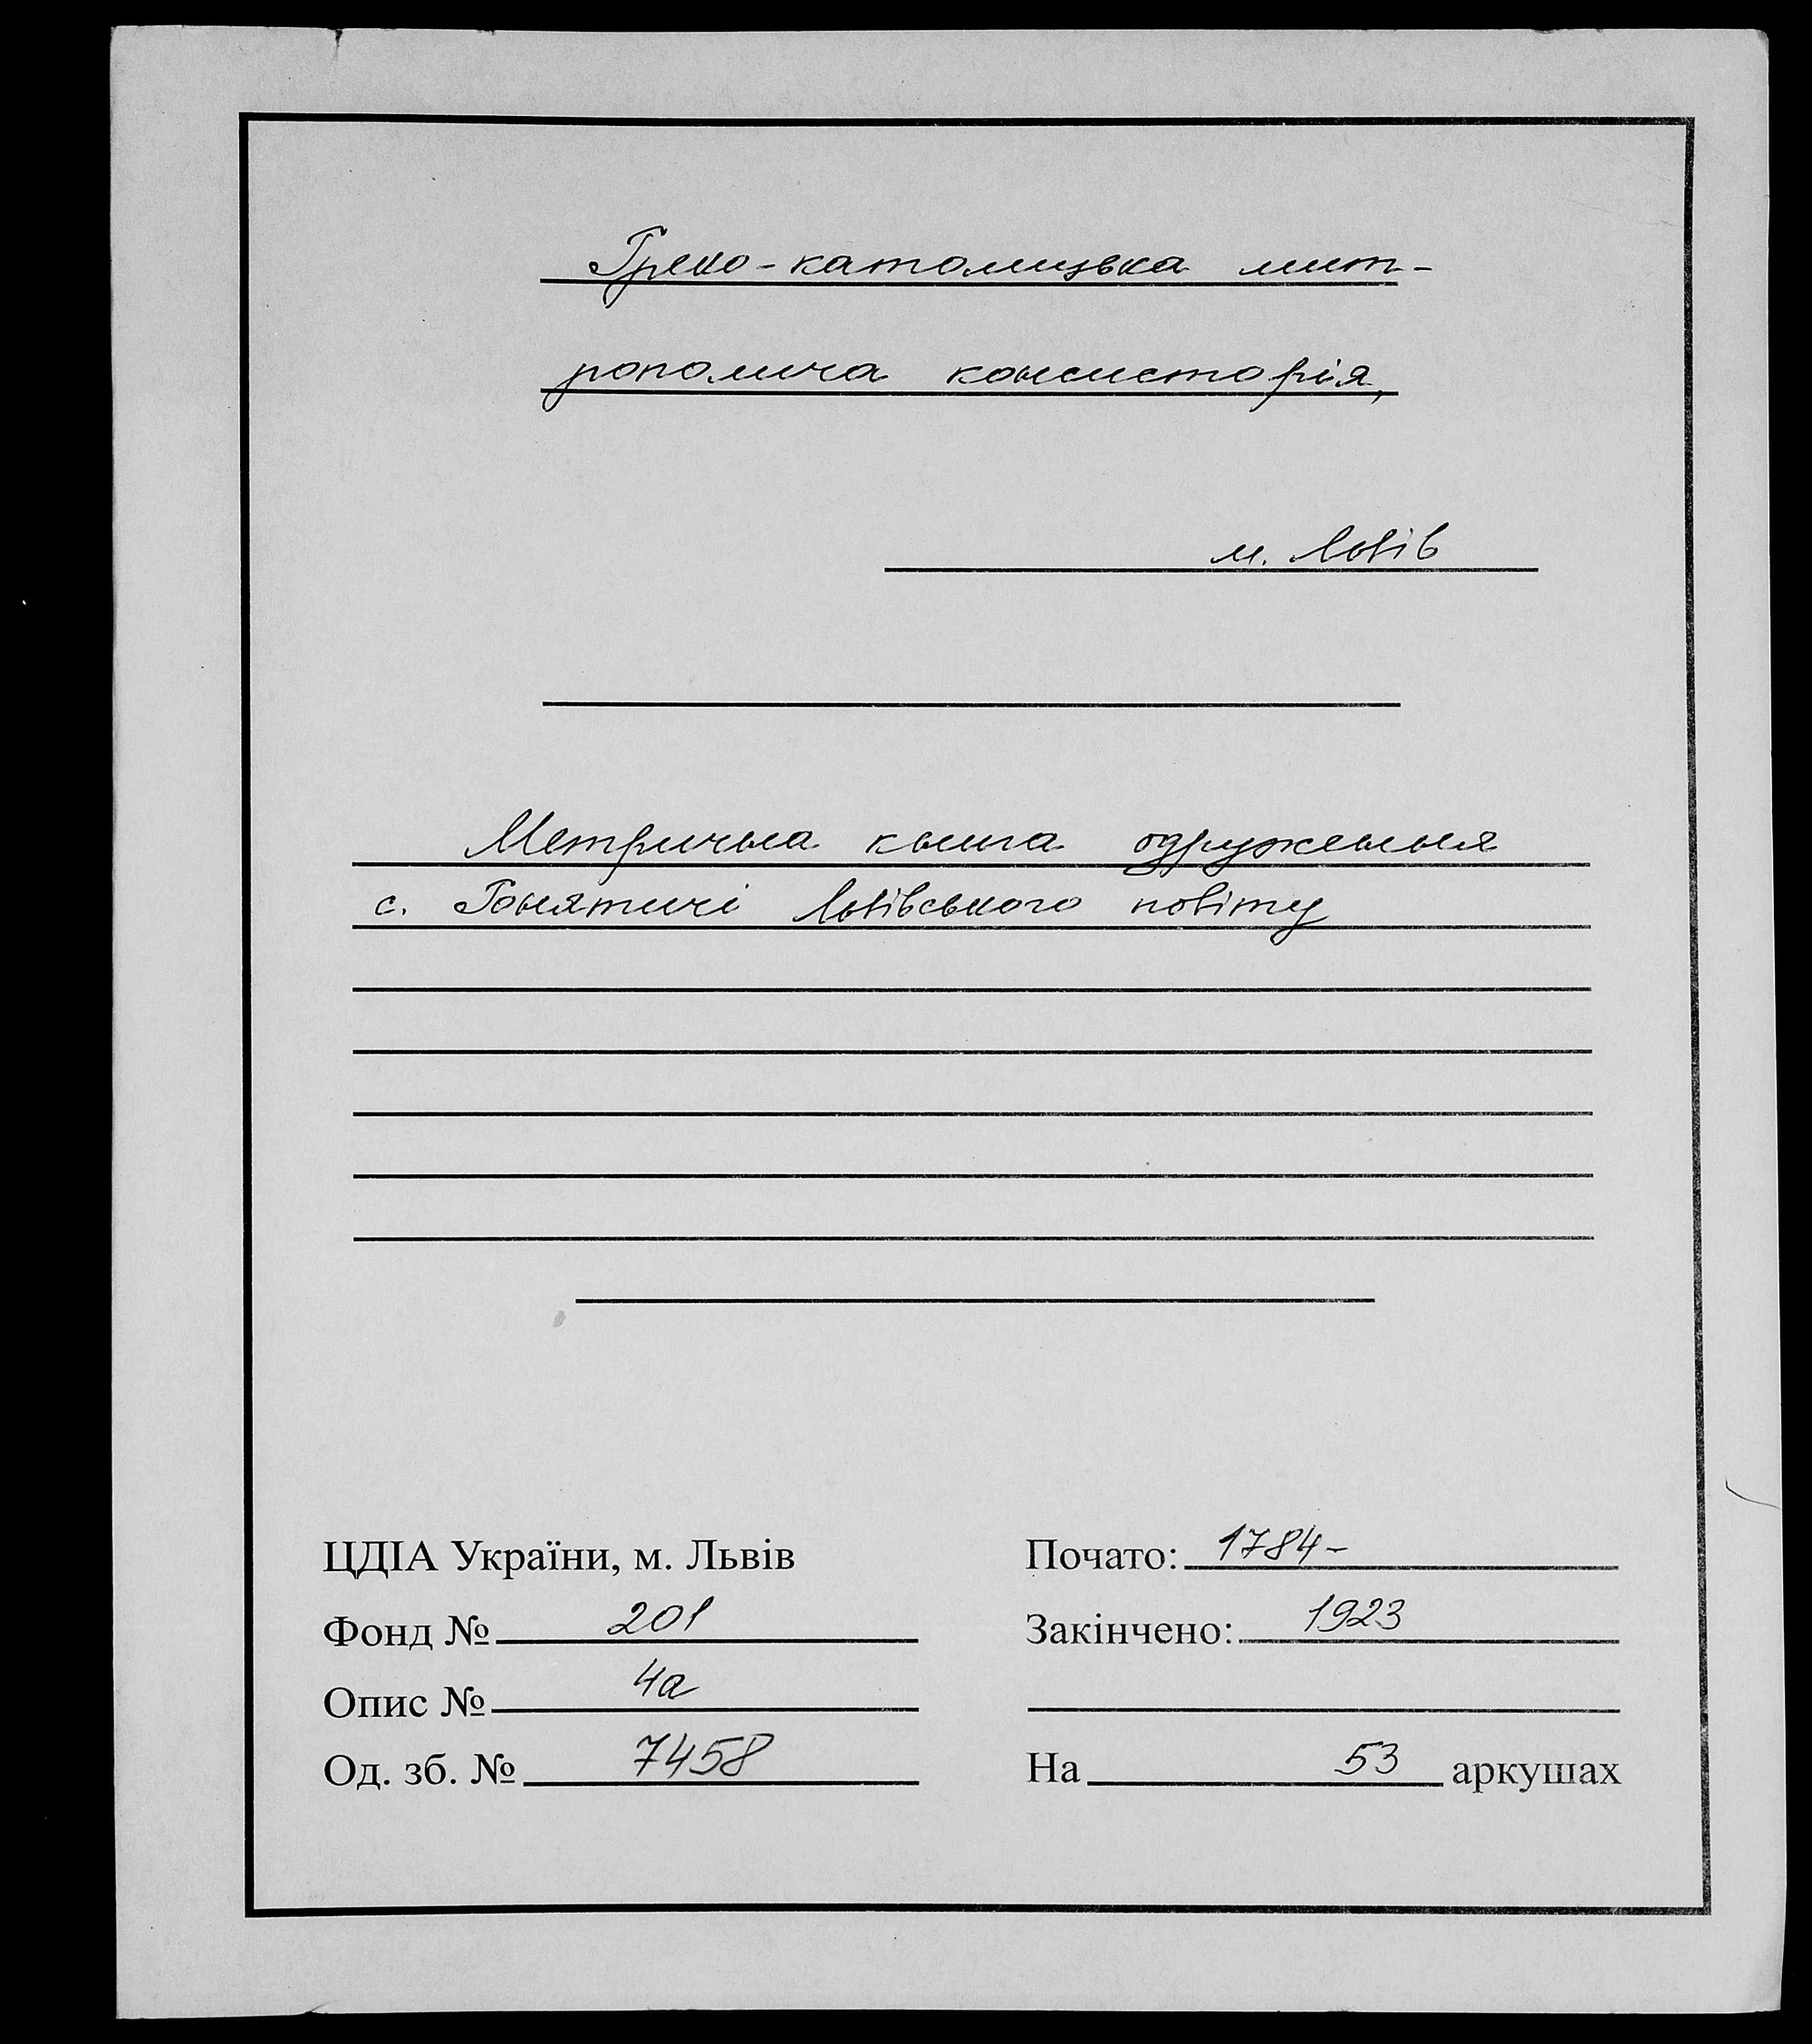 Греко-католицька мит-
рополича консисторія,
м. Львів
Метрична книга одруження
с. Гонятичі Львівського повіту
ЦДІА України, м. Львів
Почато: 1784-
Фонд № 201
Закінчено: 1923
Опис № 4а
Од. зб. № 7458
На 53 аркушах